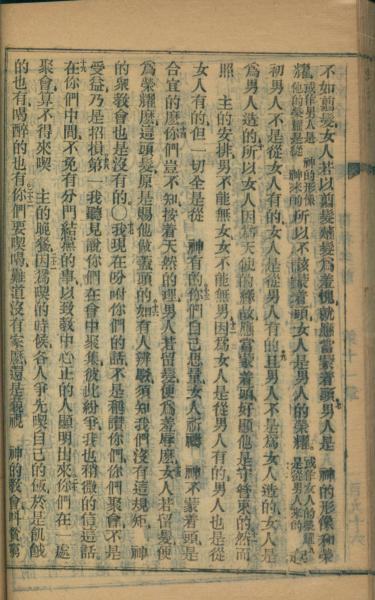 不如剪髮女人若以剪髮薙髮爲羞愧就應當蒙着頭男人是　神的形像和榮
耀或作男人是　神的形像他的榮耀是從　神來的所以不該蒙着頭女人是男人的榮耀或作女人的榮耀是從男人來的起
初男人不是從女人有的女人是從男人有的且男人不是爲女人造的女人是
爲男人造的所以女人因爲天使的緣故應當蒙着頭好顯他是守管束的然而
照　主的安排男不能無女女不能無男因爲女人是從男人有的男人也是從
女人有的但一切全是從　神有的你們自己思量女人祈禱　神不蒙着頭是
合宜的麼你們豈不知按着天然的理男人若留髮便爲羞辱麼女人若留髮便
爲榮耀麼這頭髮原是賜他做蓋頭的如有人辨駁須知我們沒有這規矩　神
的衆敎會也是沒有的○我現在吩咐你們的話不是稱讚你們你們聚會不是
受益乃是招損第一我聽見說你們在會中聚集彼此紛爭我也稍微的信這話
在你們中間不免有分門結黨的事以致敎中心正的人顯明出來你們在一處
聚會算不得來喫　主的晚餐因爲喫的時候各人爭先喫自己的飯於是飢餓
的也有喝醉的也有你們要喫喝難道沒有家麼還是藐視　神的敎會叫貧窮